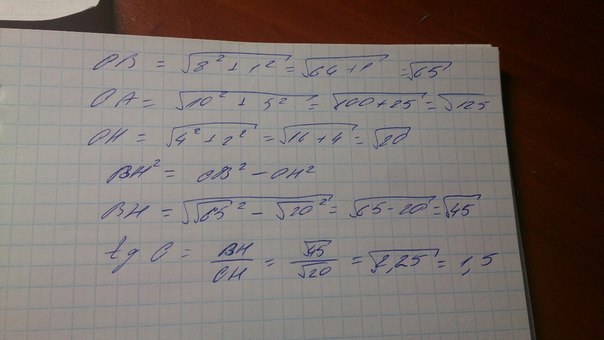 OB = √8² + 1² = √64 + 1 = √65
OA = √10² + 5² = √100 + 25 = √125
OH = √4² + 2² = √16 + 4 = √20
BH² = OB² − OH²
BH = √√65² − √20² = √65 − 20 = √45
tg O = BH/OH = √45/√20 = √2,25 = 1,5